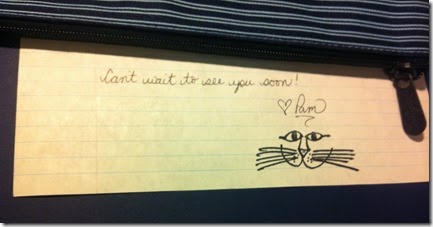 Can't wait to see you soon!
♡ Pam